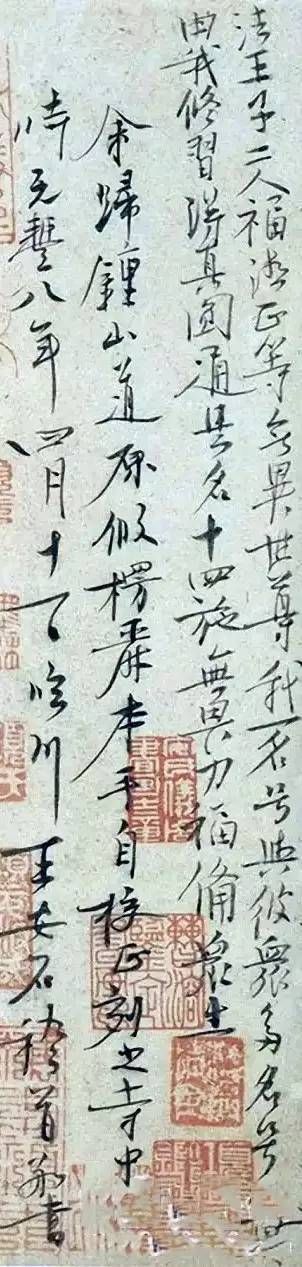 法王子二人福德正等無異世尊我一名号與彼衆多名号無
由我修習得真圓通是名十四施無畏力福備衆生
余歸鍾山道原假楞嚴本手自校正刻之寺中
時元豐八年四月十一日臨川王安石稽首敬書